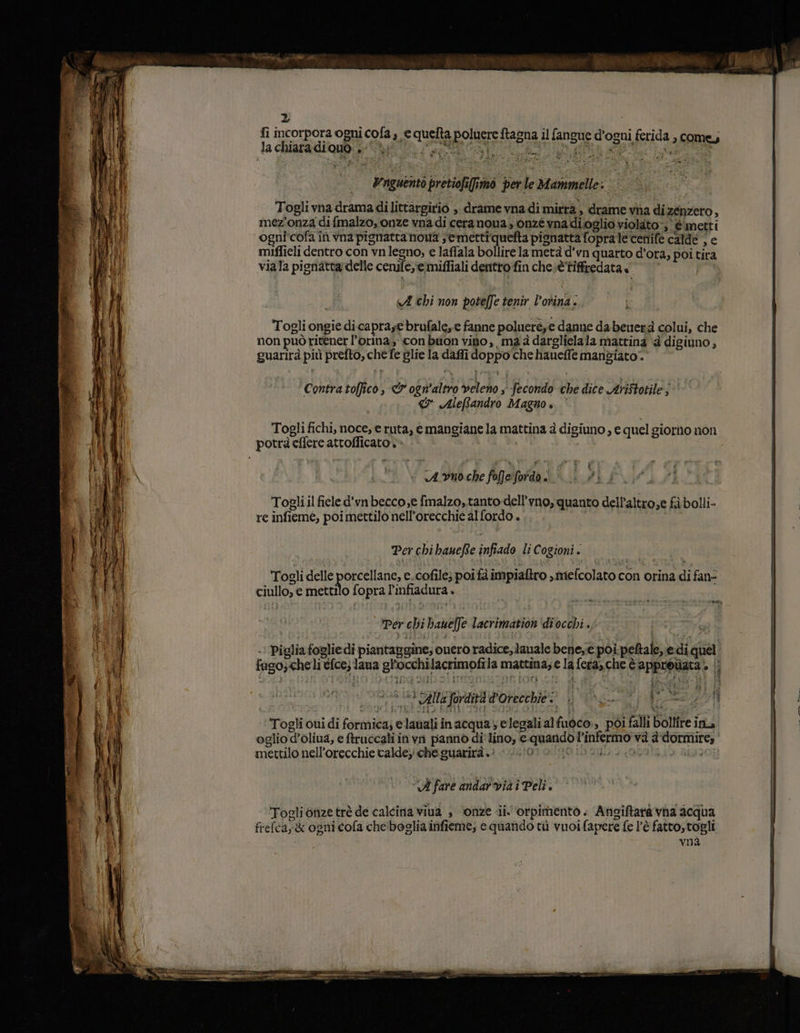 2
ſi incorpora ogni coſa, e queſta poluere ſtagna il ſangue d'ogni ferida, come
la chiara di ouo.
Vnguento pretioſiſſimo per le Mammelle.
Togli vna drama di littargirio, drame vna di mirra, drame vna di zenzero,
mez'onza di ſmalzo, onze vna di cera noua, onze vna di oglio violato, e metti
ogni coſa in vna pignatta noua, e metti queſta pignatta ſopra le ceniſe calde, e
miſſieli dentro con vn legno, e laſſala bollire la metà d'vn quarto d'ora, poi tira
via la pignatta delle ceniſe, e miſſiali dentro fin che è tiffredata.
A chi non poteſſe tenir l'orina.
Togli ongie di capra, e bruſale, e fanne poluere, e danne da beuerà colui, che
non può ritener l'orina, con buon vino, ma à darglielala mattina à digiuno,
guarirà più preſto, che ſe glie la daſſi doppo che haueſſe mangiato.
Contra toſſico, & ogn'altro veleno, ſecondo che dice Ariſtotile,
& Aleſſandro Magno.
Togli fichi, noce, e ruta, e mangiane la mattina à digiuno, e quel giorno non
potrà eſſere attoſſicato.
A vno che foſſe ſordo.
Togli il fiele d'vn becco, e ſmalzo, tanto dell'vno, quanto dell'altro, e fà bolli-
re inſieme, poi mettilo nell'orecchie al ſordo.
Per chi haueſſe infiado li Cogioni.
Togli delle porcellane, e cofile, poi fà impiaſtro, meſcolato con orina di fan-
ciullo, e mettilo ſopra l'infiadura.
Per chi haueſſe lacrimation di occhi.
Piglia foglie di piantaggine, ouero radice, lauale bene, e poi peſtale, e di quel
ſugo, che li eſce, laua gl'occhi lacrimoſi la mattina, e la ſera, che è appreuata.
Alla ſordità d'Orecchie.
Togli oui di formica, e lauali in acqua, e legali al fuoco, poi falli bollire in
oglio d'oliua, e ſtruccali in vn panno di lino, e quando l'infermo và à dormire,
mettilo nell'orecchie calde, che guarirà.
A fare andar via i Peli.
Togli onze trè de calcina viua, onze ii. orpimento. Angiſtara vna acqua
freſca, & ogni coſa che boglia inſieme, e quando tù vuoi ſapere ſe l'è fatto, togli
vna